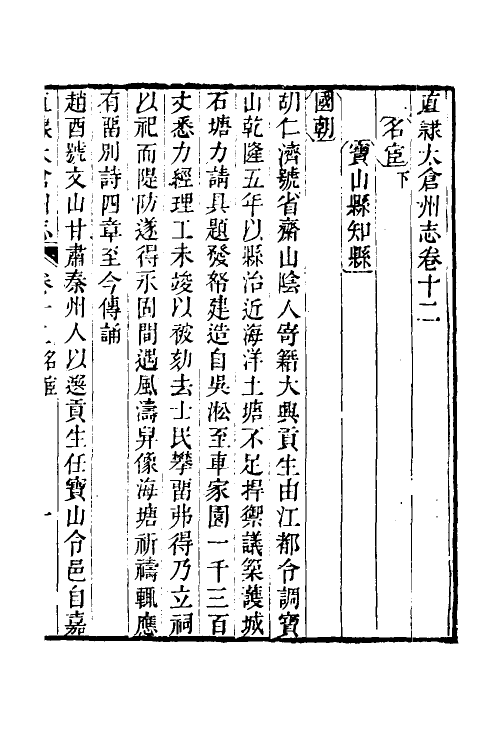 直隷太倉州志卷十二
名宦下
寶山縣知縣
國朝
胡仁濟號省齋山陰人寄籍大興貢生由江都令調寶
山乾隆五年以縣治近海洋土塘不足捍禦議築護城
石塘力請具題發帑建造自吳淞至車家園一千三百
丈悉力經理工未竣以被劾去士民攀畱弗得乃立祠
以祀而隄防遂得永固間遇風濤舁像海塘祈禱輒應
有畱別詩四章至今傳誦
趙酉號文山甘肅秦州人以選貢生任寶山令邑自嘉
直隷太倉州志 卷十二名宦 一